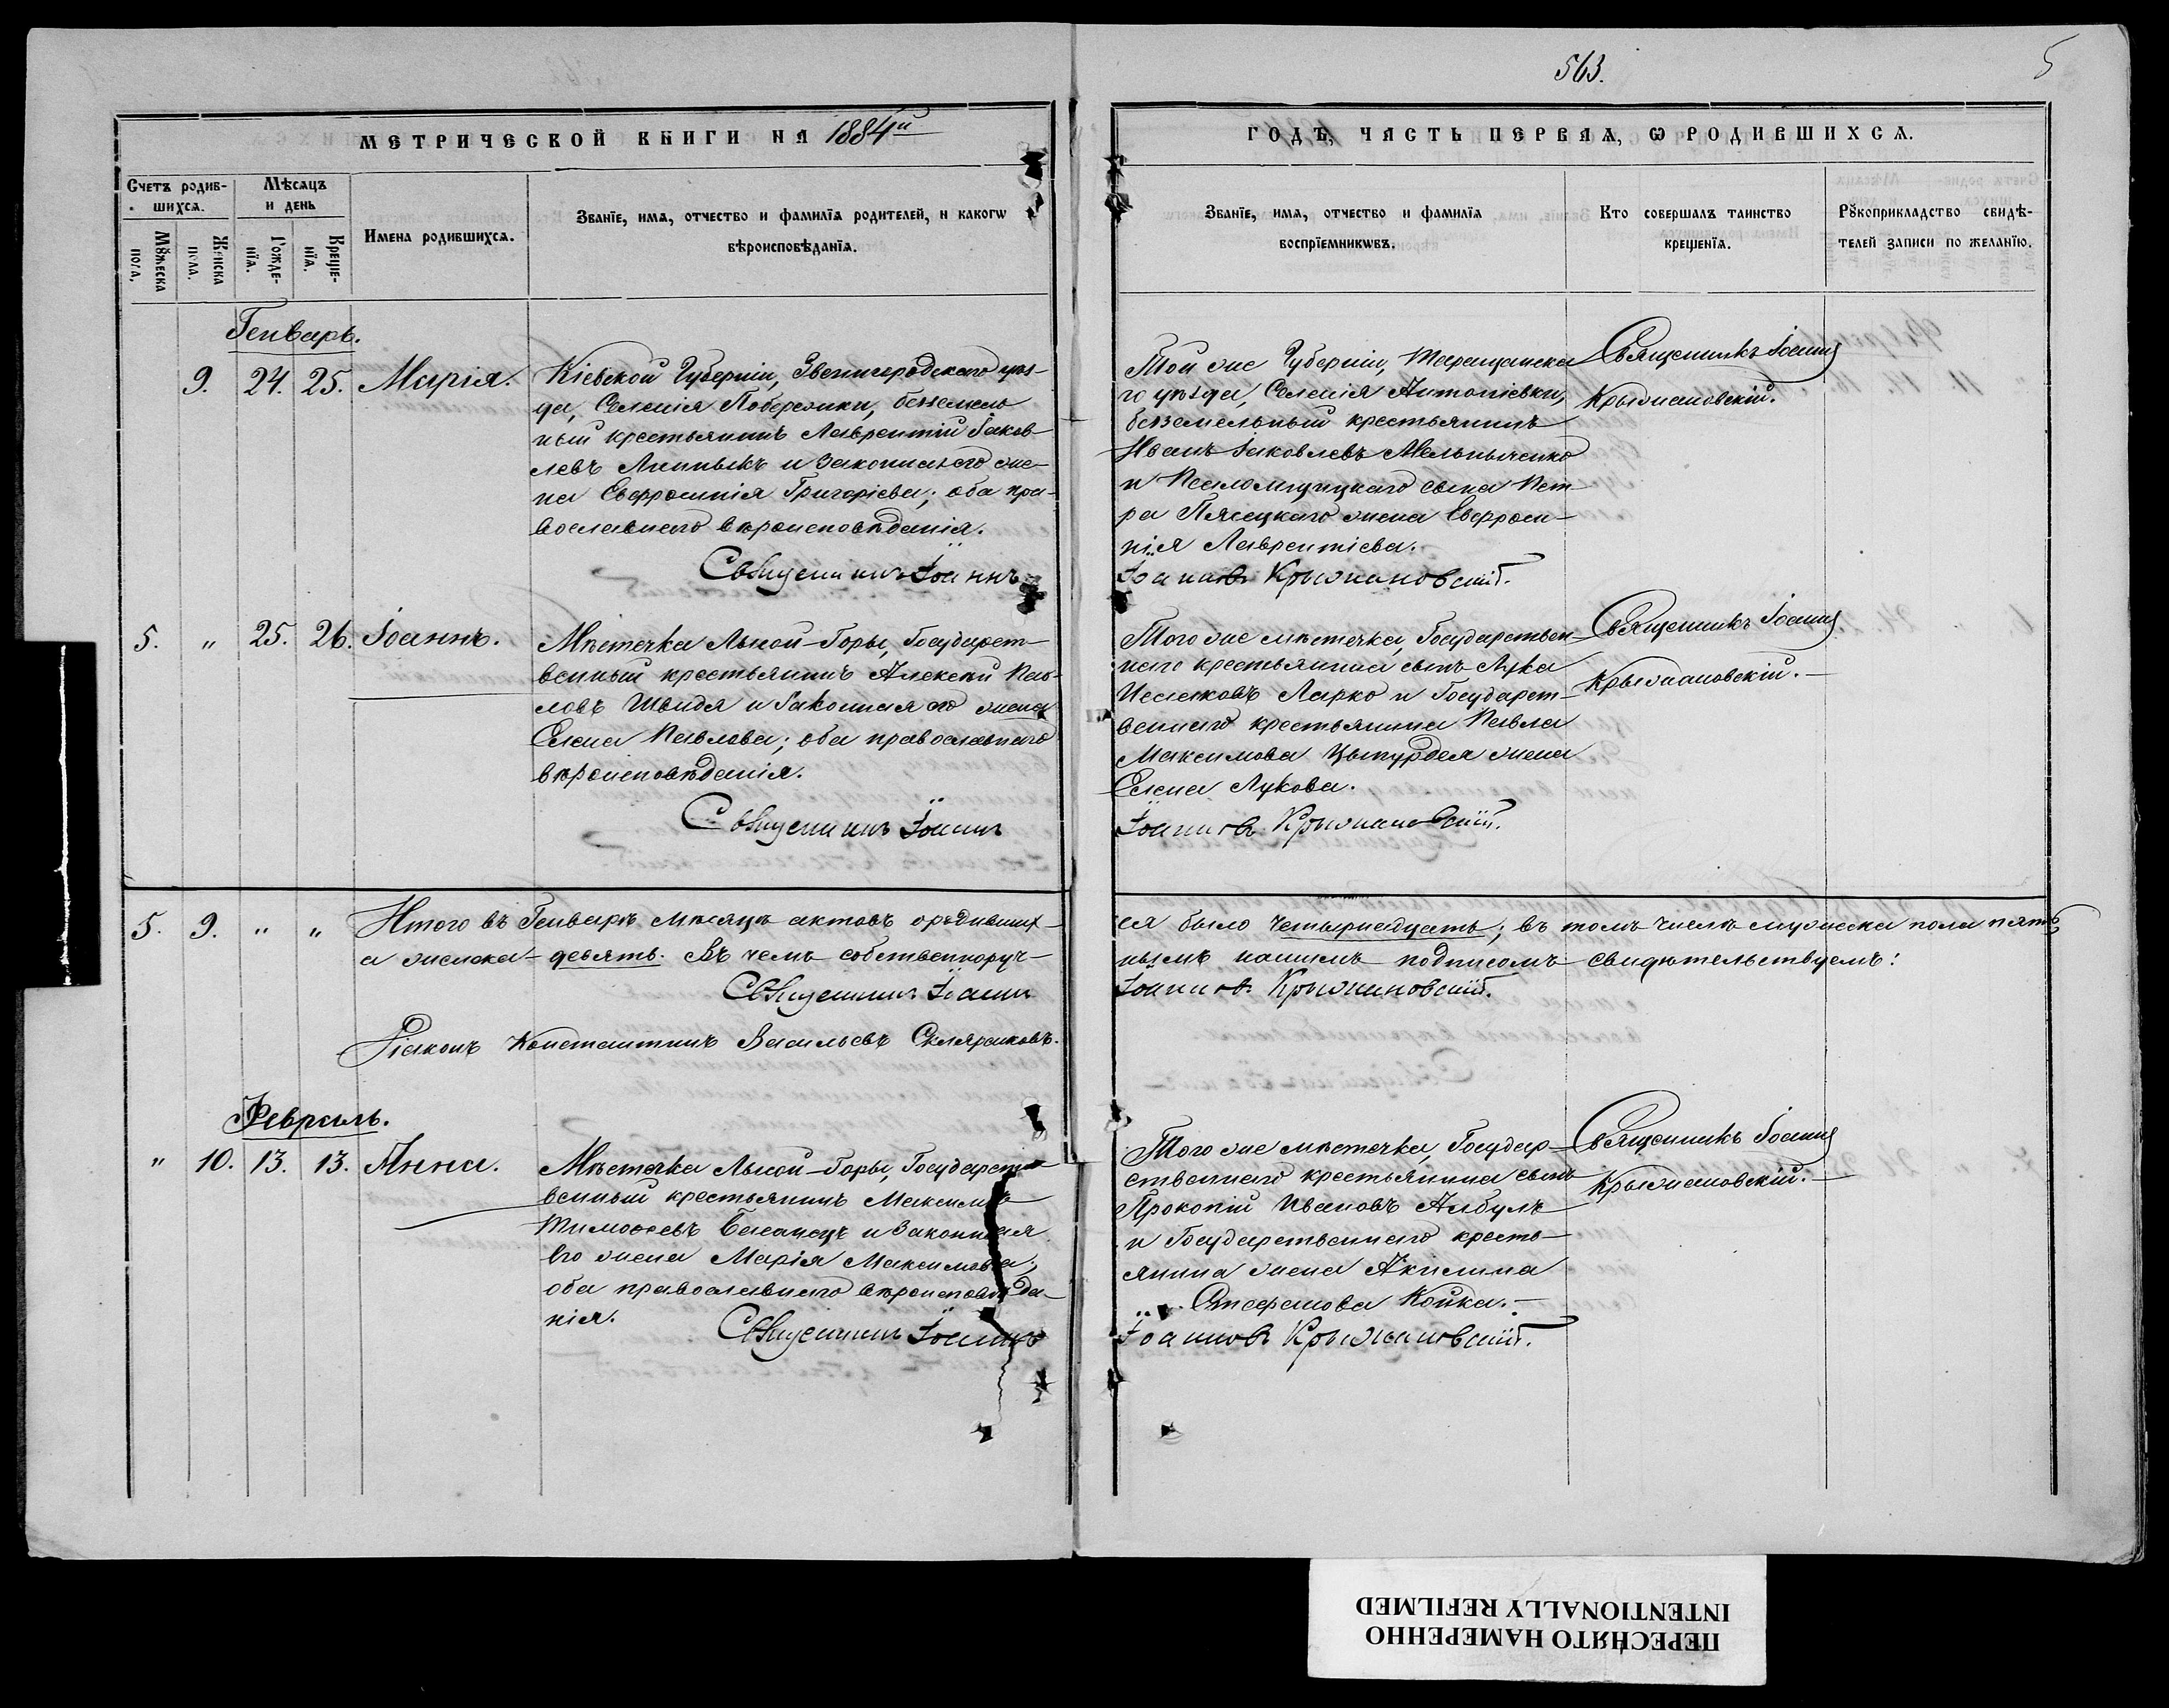 563.
5
МЕТРИЧЕСКОЙ КНИГИ НА 1884й
ГОДЪ, ЧАСТЬ ПЕРВАЯ, Ѡ РОДИВШИХСЯ.
Счетъ родив-
шихся.
Мѣсяцъ
и день
Мꙋжеска
пола.
Женска
пола.
Рожде-
нїя.
Креще-
нїя.
Имена родившихся.
Званїе, имя, отчество и фамилїя родителей, и какогѡ
вѣроисповѣданїя.
Званїе, имя, отчество и фамилїя
воспрїемникѡвъ.
Кто совершалъ таинство
крещенїя.
Рꙋкоприкладство свидѣ-
телей записи по желанїю.
Генварь.
9. 24. 25. Марія.
Кіевской Губерніи, Звенигородскаго уѣз-
да, Селенія Побережки, безземель
ный крестьянинъ Лаврентій Іаков-
левъ и законная его же-
на Евфросинія Григоріева; оба пра-
вославнаго вѣроисповѣданія.
Священникъ Іоаннъ
Той же Губерніи, Таращанска
го уѣзда, Селенія Антоновки,
безземельный крестьянинъ
Иванъ Іаковлевъ Мельниченко
и Псаломщицкаго сына Пет-
ра Пясецкаго жена Евфроси-
нія Лаврентіева.
Іоаннъ Крыжановскій.
Священникъ Іоаннъ
Крыжановскій.
5. " 25. 26. Іоаннъ.
Мѣстечка Лысой-Горы, Государст-
венный крестьянинъ Алексѣй Пав-
ловъ Швидя и Законная его жена
Елена Павлова; оба православнаго
вѣроисповѣданія.
Священникъ Іоаннъ
Того же мѣстечка, Государствен-
наго крестьянина сынъ Лука
Ларко и Государст-
веннаго крестьянина Павла
Максимова жена
Елена Лукова.
Іоаннъ Крыжановскій.
Священникъ Іоаннъ
Крыжановскій.
5. 9. " " Итого въ Генварѣ мѣсяцѣ актовъ о родивших-
ся было четырнадцать; въ томъ числѣ мужеска пола пять
а женска - девять. Въ чемъ собственноруч-
нымъ нашимъ подписомъ свидѣтельствуемъ:
Священникъ Іоаннъ
Іоаннъ Крыжановскій.
Діаконъ Константинъ Васильевъ Скляренковъ.
Февраль.
" 10. 13. 13. Анна.
Мѣстечка Лысой-Горы, Государст-
венный крестьянинъ Максимъ
Тимоѳеевъ Басанецъ и Законная
Его жена Марія Максимова;
оба православнаго вѣроисповѣда-
нія.
Священникъ Іоаннъ
Того же мѣстечка, Государ-
ственнаго крестьянина сынъ
Прокопій Ивановъ Албулъ
и Государственнаго кресть-
янина жена Акилина
Стефанова Койка.
Іоаннъ Крыжановскій.
Священникъ Іоаннъ
Крыжановскій.
ПЕРЕСНЯТО НАМЕРЕННО
INTENTIONALLY REFILMED